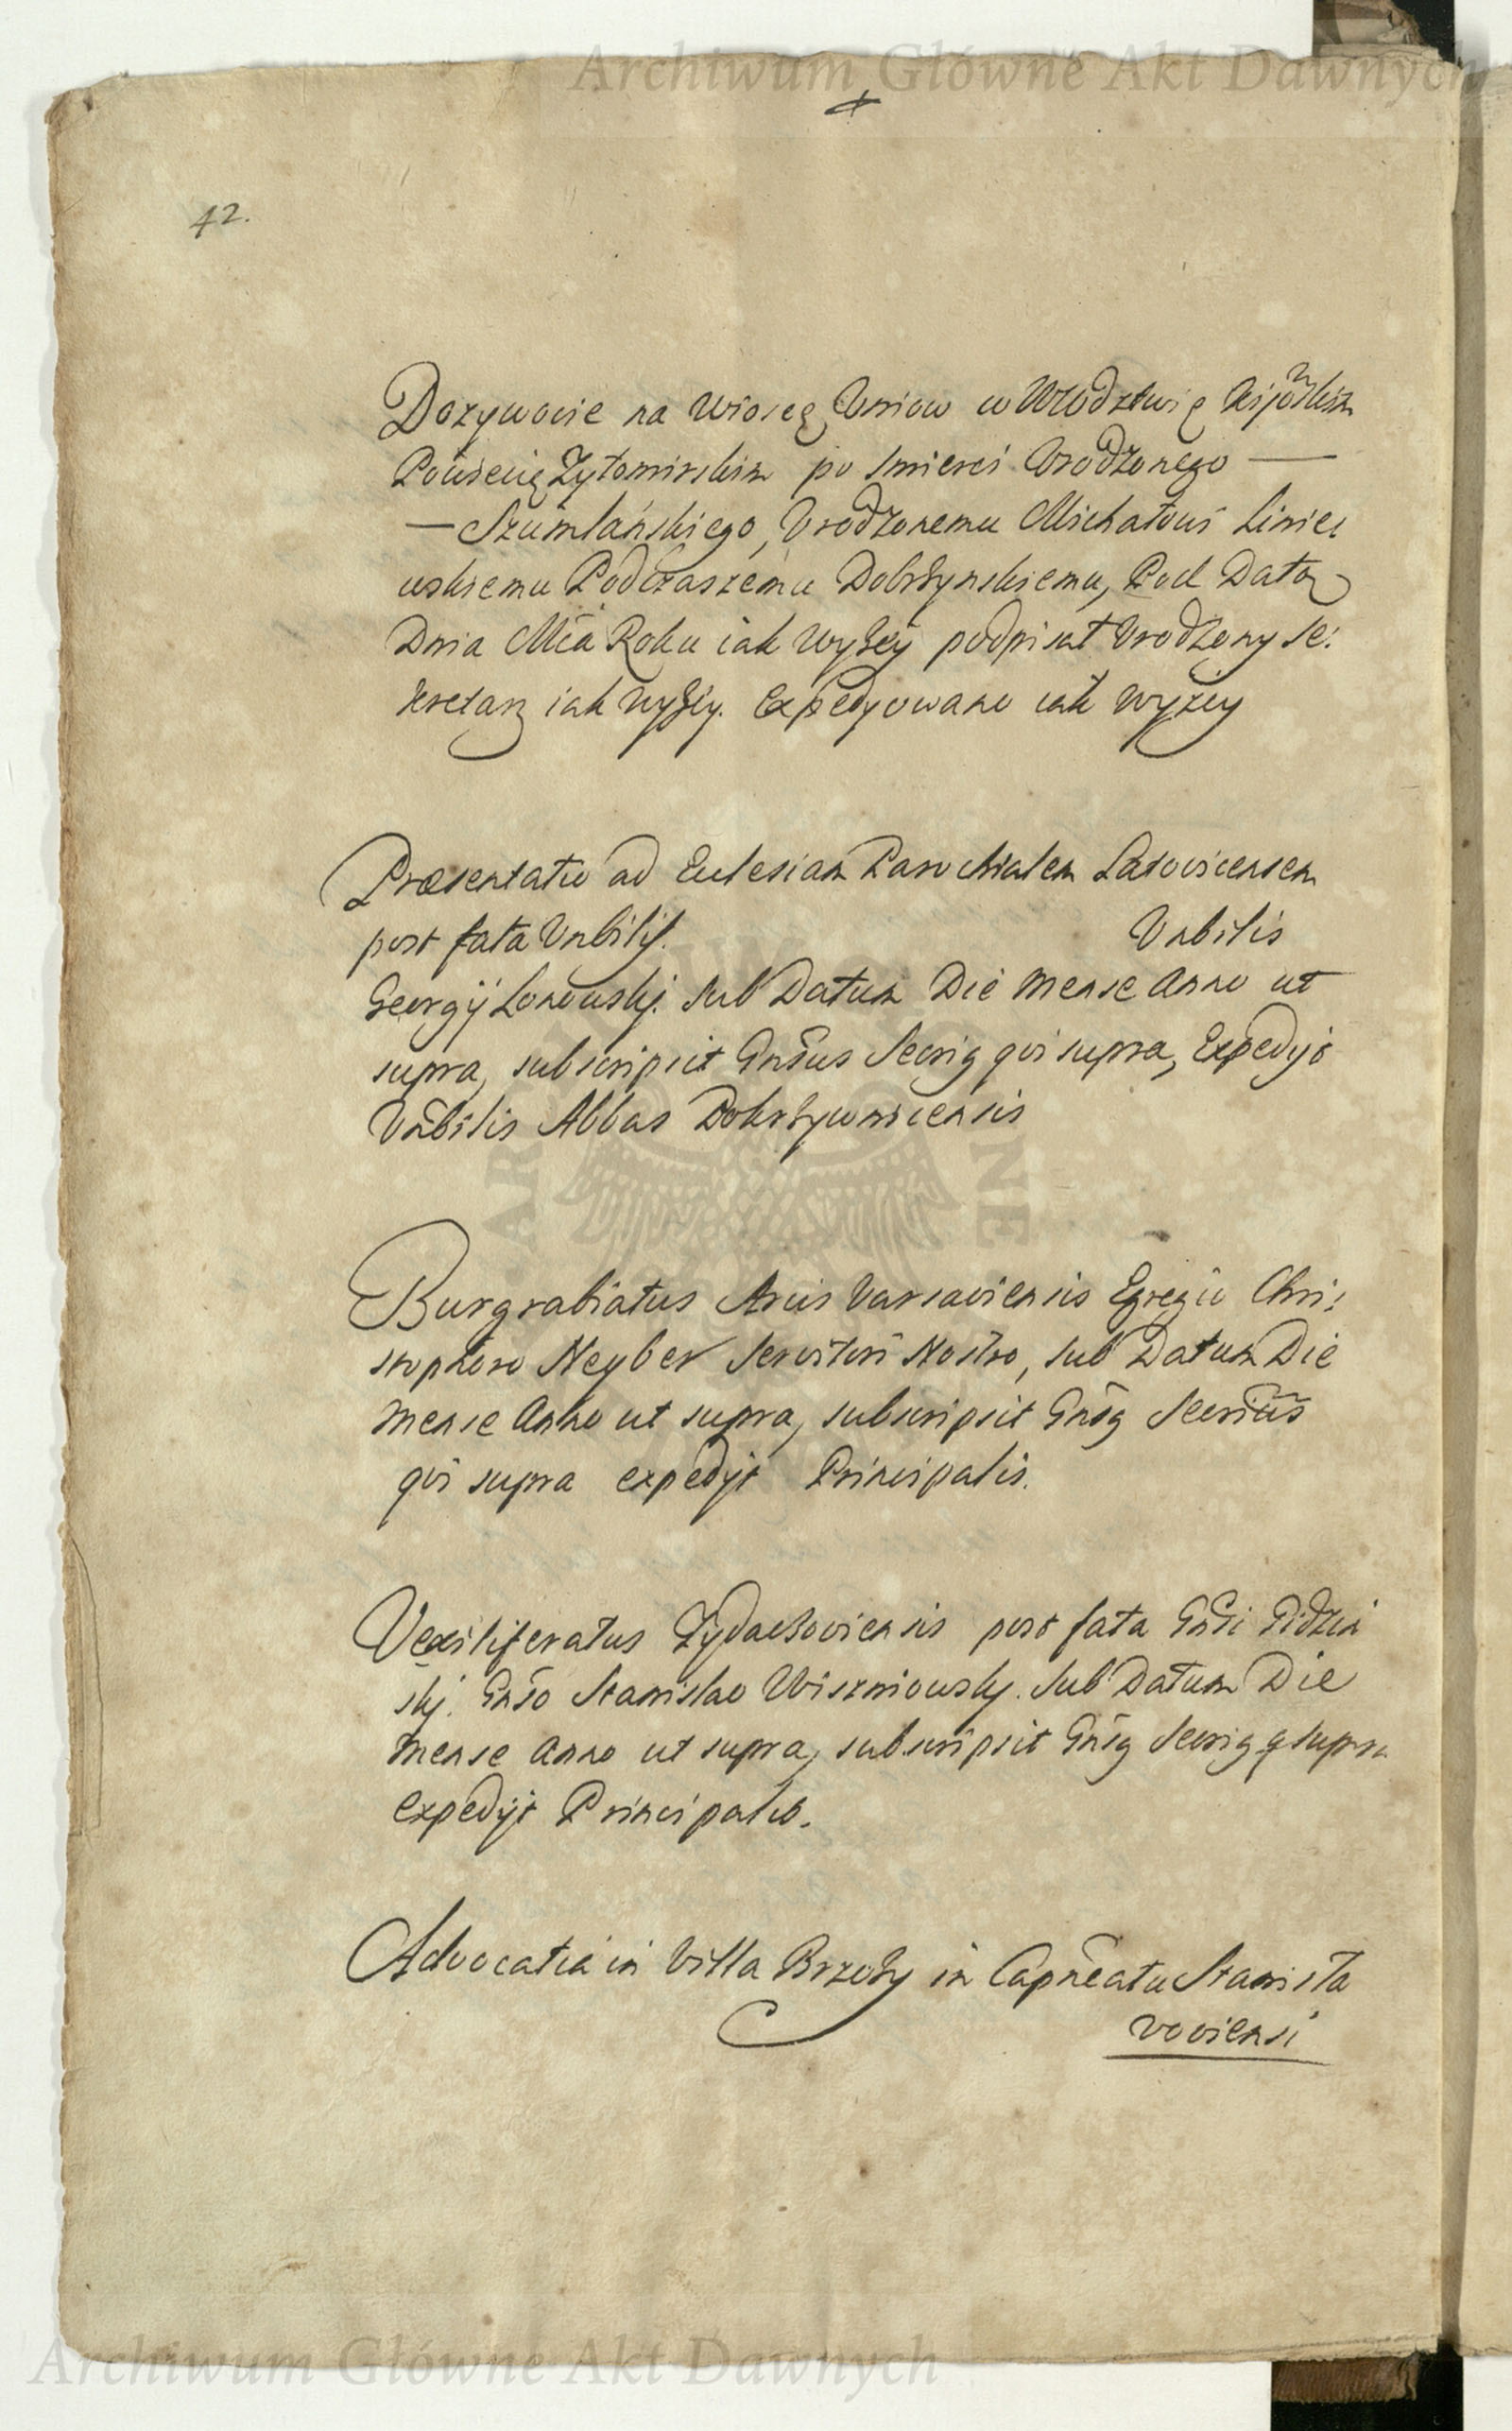 Archiwum Główne Akt Dawnych
42.
Dozywocie na Wioscę Uniow w Wwodztwie Kijowskim
Powiecię Zytomirskim po smierci Urodzonego —
— Szumlańskiego, Urodzonemu Michałowi Linie:
wskiemu Podczaszemu Dobrzynskiemu, Pod Datą
Dnia Mca Roku iak wyżey podpisał Urodzony Se:
kretarz iak wyżey. Expedyowano iak wyżey
Præsentatio ad Eclesiam Parochialem
post fata Vnbilis. Vnbilis
Georgij Sub Datum Die Mense Anno ut
supra, subscripsit Gnsus Secrig qvi supra, Expedyt
Vnbilis Abbas
Burgrabiatus Arcis Varsaviensis Egregio Chri:
stophoro Neyber Servitori Nostro, sub Datum Die
Mense Anno ut supra, subscripsit Gnsg Secrius
qvi supra expedyt Principalis.
Vexiliferatus Zydaczoviensis post fata Gnsi
skj. Gnso Stanislao Wiszniowskj. Sub Datum Die
Mense Anno ut supra, subscripsit Gnsg Secrig q supra
Expedyt Principalis.
Advocatia in Villa Brzozy in Capneatu Stanisła
voviensi
Archiwum Główne Akt Dawnych